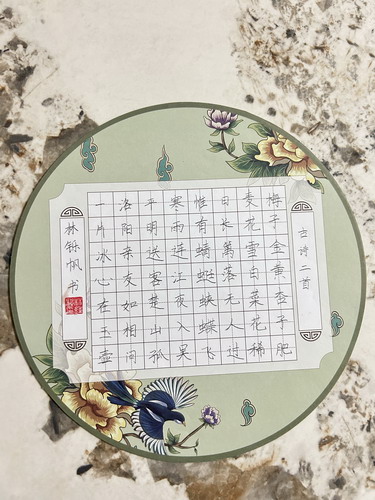 古诗二首
梅子金黄杏子肥
麦花雪白菜花稀
日长篱落无人过
惟有蜻蜓蛱蝶飞
寒雨连江夜入吴
平明送客楚山孤
洛阳亲友如相问
一片冰心在玉壶
林铄帆书